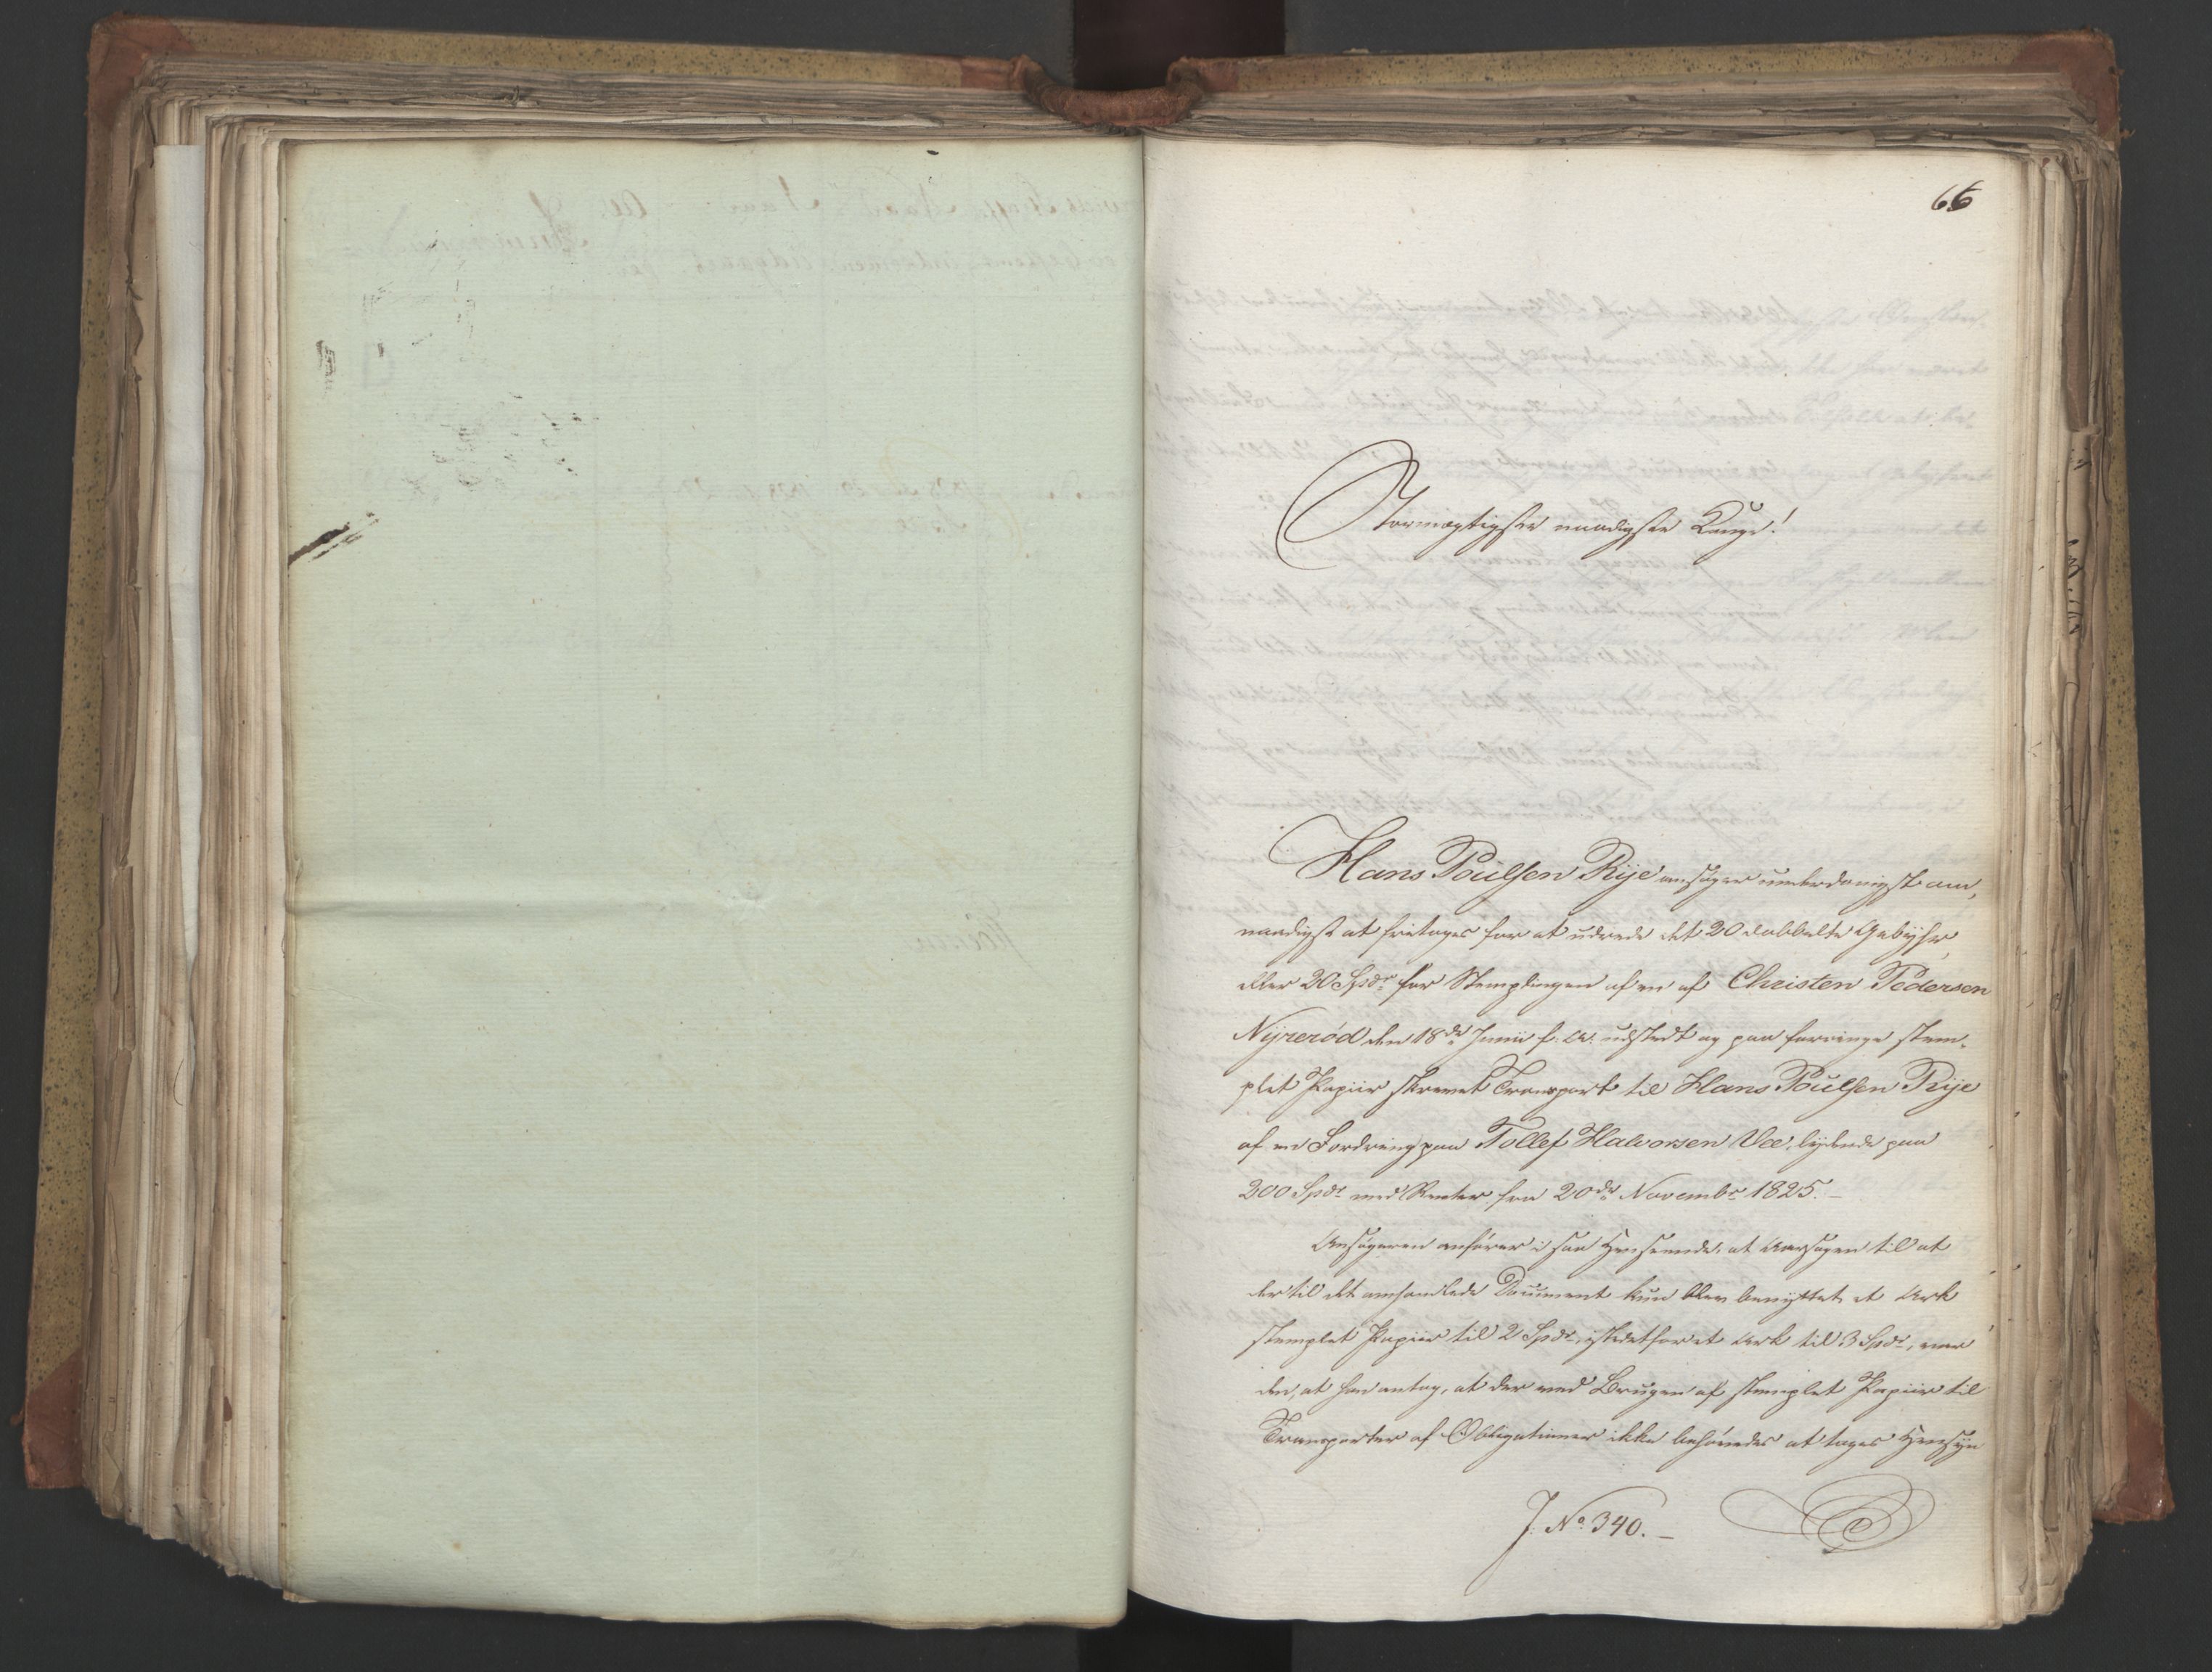 66
Stormægtigste naadigste Konge!
Hans Poulsen Rije ansøger underdanigst om,
naadigst at fritages for at udrede det 20 dobbelte Gebyhr,
eller 20 Spdr for Stemplingen af en af Christen Pedersen
Nyrerød den 18de Junii f. A. udstedt og paa forringe stem-
plet Papiir skrevet Transport til Hans Poulsen Rije
af en Fordring paa Tollef Halvorsen Vee, lydende paa
200 Spdr med Renter fra 20de Novembr 1825.—
Ansøgeren anfører i saa Henseende, at Aarsagen til at
der til det omhandlede Document kun blev benyttet et Ark
stemplet Papiir til 2 Spdr, istedetfor et Ark til 3 Spdr, var
den, at han antog, at der ved Brugen af stemplet Papiir til
Transporter af Obligationer ikke behøvedes at tages Hensyn
J. No. 340.—